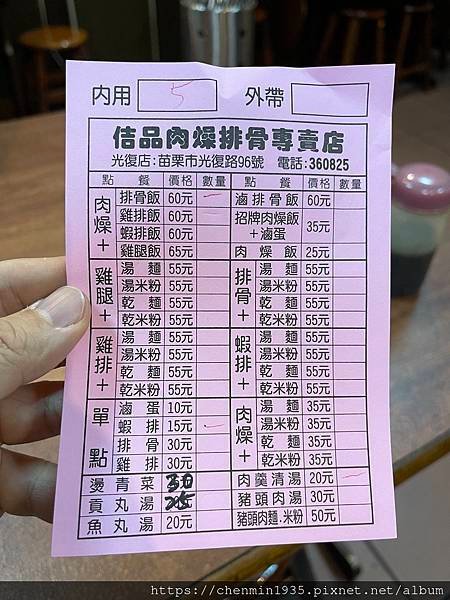 內用 5 外帶
佶品肉燥排骨專賣店
光復店:苗栗市光復路96號 電話:360825
點 餐 價格 數量 點 餐 價格 數量
肉燥+
排骨飯 60元
雞排飯 60元
蝦排飯 60元
雞腿飯 65元
滷排骨飯 60元
招牌肉燥飯+滷蛋 35元
肉燥飯 25元
雞腿+
湯麵 55元
湯米粉 55元
乾麵 55元
乾米粉 55元
排骨+
湯麵 55元
湯米粉 55元
乾麵 55元
乾米粉 55元
雞排+
湯麵 55元
湯米粉 55元
乾麵 55元
乾米粉 55元
蝦排+
湯麵 55元
湯米粉 55元
乾麵 55元
乾米粉 55元
單點
滷蛋 10元
蝦排 15元
排骨 30元
雞排 30元
肉燥+
湯麵 35元
湯米粉 35元
乾麵 35元
乾米粉 35元
燙青菜 30
貢丸湯 25
魚丸湯 20元
肉羹清湯 20元
豬頭肉湯 30元
豬頭肉麵.米粉 50元
https://chenmin1935.pixnet.net/album